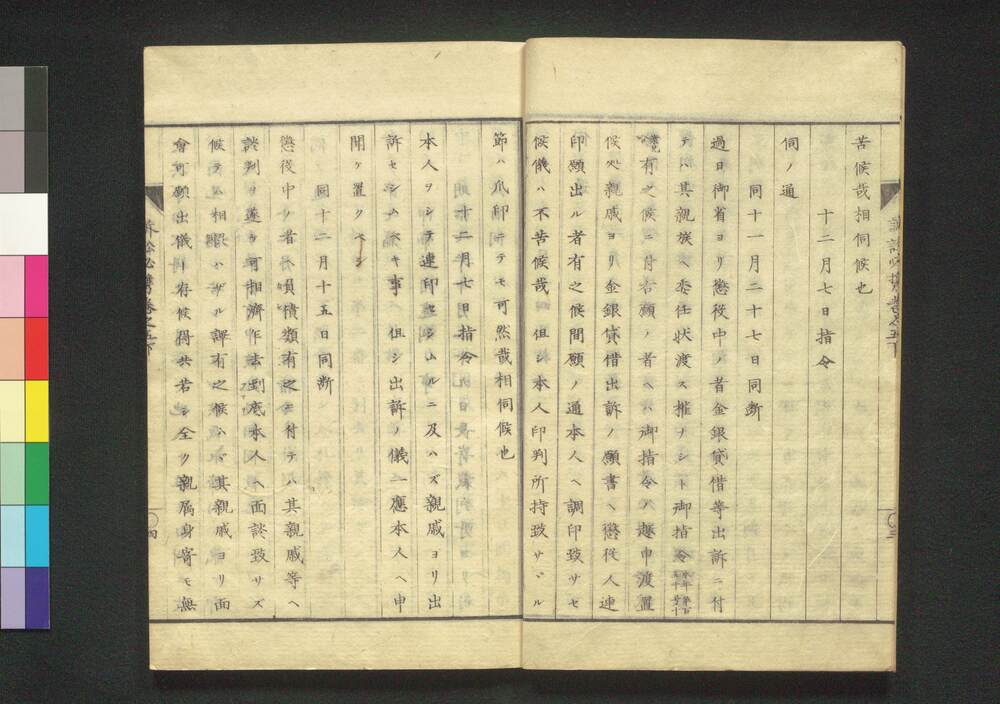 苦候哉相伺候也
十二月七日指令
伺ノ通
同十一月二十七日同断
過日御省ヨリ懲役中ノ者金銀貸借等出訴ニ付
テハ其親族ヘ委任状渡ス権ナシト御指令
有之候ニ付右願ノ者ヘハ御指令ノ趣申渡置
候処親戚ヨリ金銀貸借出訴ノ願書ヘ懲役人連
印願出ル者有之候間願ノ通本人ヘ調印致サセ
候儀ハ不苦候哉 但シ本人印判所持致サヾル
節ハ爪印ニテモ可然哉相伺候也
十二月七日指令
本人ヲシテ連印セシムルニ及ハズ親戚ヨリ出
訴セシムヘキ事 但シ出訴ノ儀一應本人ヘ申
聞ケ置クベシ
同十二月十五日同断
懲役中ノ者ヘ負債類有之ニ付テハ其親戚等ヘ
談判ヲ遂ケ可相濟作去到底本人ヘ面談致サズ
候テハ相Äハザル譯有之候ハヾ其親戚ヨリ面
會可願出儀ト存候得共若シ全ク親属身寄モ無